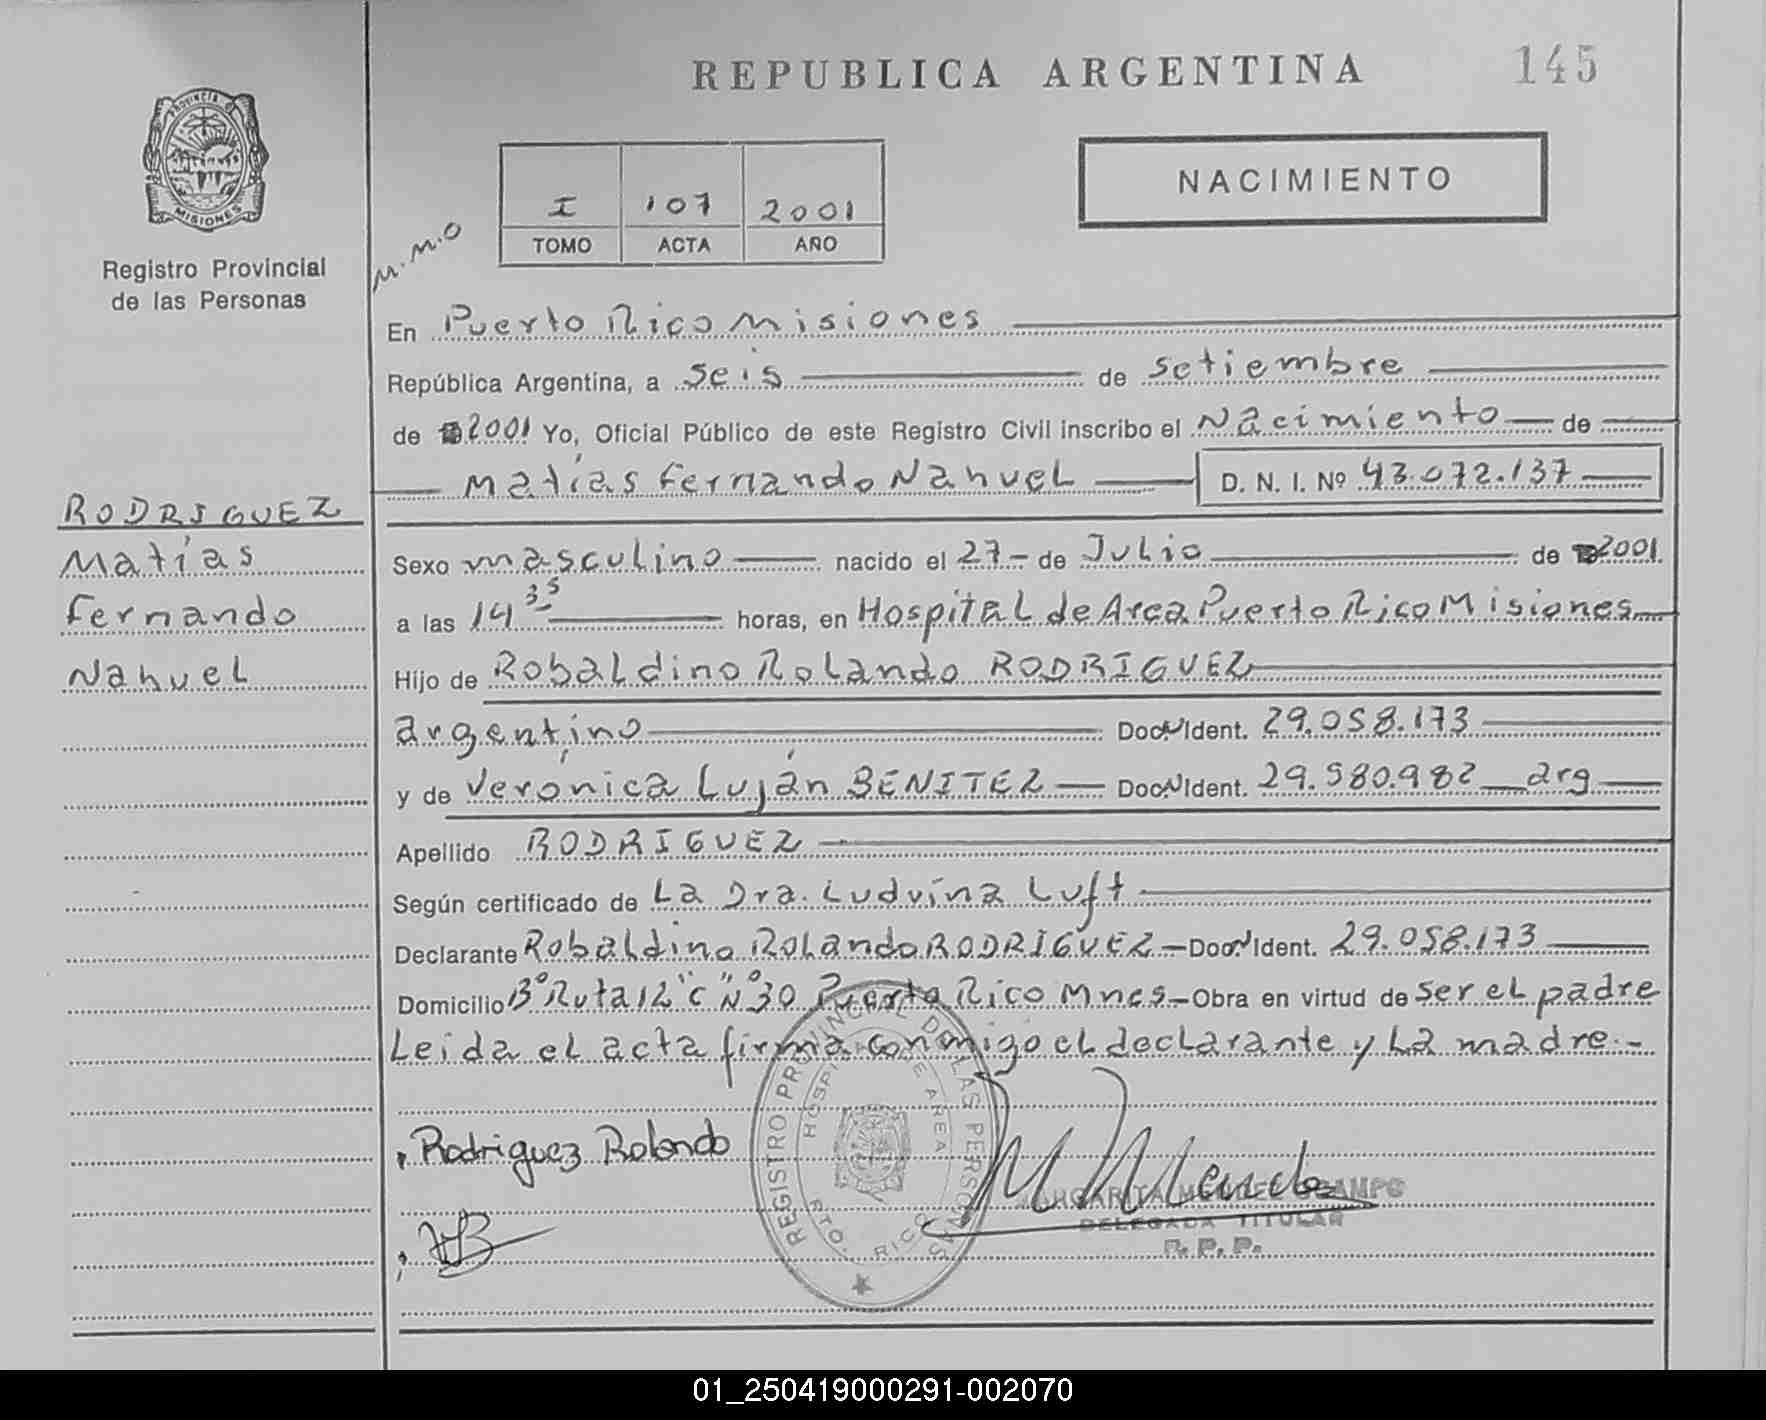 REPUBLICA ARGENTINA
145
PROVINCIA DE
MISIONES
Registro Provincial
de las Personas
I 107 2001
TOMO ACTA AÑO
NACIMIENTO
M.M.O
En Puerto Rico Misiones
República Argentina, a seis de setiembre
de 2001 Yo, Oficial Público de este Registro Civil inscribo el Nacimiento de
Matías Fernando Nahuel D. N. I. Nº 43.072.137
RODRIGUEZ
Matías
Fernando
Nahuel
Sexo masculino nacido el 27 de Julio de 2001.
a las 14 35 horas, en Hospital de Area Puerto Rico Misiones
Hijo de Robaldino Rolando RODRIGUEZ
argentino Doc. Ident. 29.058.173
y de Verónica Luján BENITEZ Doc. Ident. 29.580.982 arg
Apellido RODRIGUEZ
Según certificado de La Dra. Ludvina Luft
Declarante Robaldino Rolando RODRIGUEZ Doc. Ident. 29.058.173
Domicilio Bº Ruta 12 "C" Nº 30 Puerto Rico Mnes Obra en virtud de ser el padre
Leida el acta firma conmigo el declarante y La madre.-
Rodriguez Rolando
REGISTRO PROVINCIAL DE LAS PERSONAS
HOSPITAL DE AREA
PTO. RICO
MARGARITA MENDEZ OCAMPO
DELEGADA TITULAR
R. P. P.
01_250419000291-002070